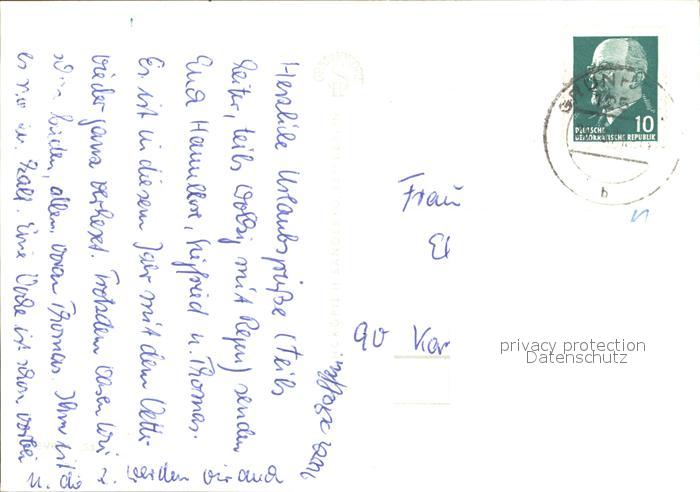 Herzliche Urlaubsgrüße (teils
heiter, teils wolkig mit Regen) senden
Euch Hannelore, Siegfried u. Thomas.
Es ist in diesem Jahr mit dem Wetter
wieder ganz verhext. Trotzdem lassen wir
baden, allem voran Thomas. Ihm ist
es nie zu kalt. Eine Woche ist schon vorbei
u. die 2. werden wir auch
Frau
El
90 Kar
10
DEUTSCHE
DEMOKRATISCHE REPUBLIK
b
privacy protection
Datenschutz